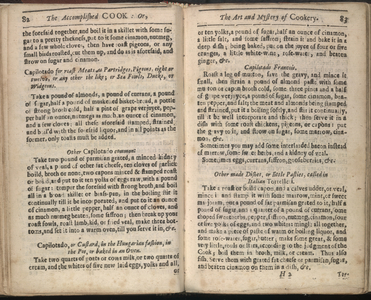 82 The Accomplisht COOK: Or,
the foresaid together, and boil it in a skillet with some sugar to a pretty thickness, put to it some cinamon, nutmeg,
and a few whole cloves, then have rost pigeons, or any
small birds
strow on sugar and cinamon.
Capilotado for rost Meats, as Partridges, Pigeons, eight or
twelve, or any other the like; or Sea Fowls, Ducks, or
Widgeons.
Take a pound of almonds, a pound of currans, a pound
of sugar, half a pound of
of strong broth cold, half a pint of grape verjuyce, pepper half an ounce, nutmegs as much, an ounce of cinamon,
and a few cloves; all these aforesaid stamped, strained,
and boil'd with the foresaid liquor, and in all points as the
former, only tosts must be added.
Other Capilotado common
Take two pound of parmisan grated, a minced kidney
of veal, a pound of other fat cheese, ten cloves of garlick
boild, broth or none, two capons minced & stamped rost
or boild, and put to it ten yolks of eggs raw, with a pound
of sugar: temper the foresaid with strong broth, and boil
all in a broad skillet or brass-pan, in the boiling stir it
continually till it be incorporated, and put to it an ounce
of cinamon, a little pepper, half an ounce of cloves, and
as much nutmeg beaten, some saffron; then break up your
roast fowls, roast lamb, kid, or fried veal, make three bottoms, and set it into a warm oven, till you serve it in, &c.
Capilotado, or Custard, in the Hungarian fashion, in
the Pot, or baked in an Oven.
Take two quarts of goats or cows milk, or two quarts of
cream, and the whites of five new laid eggs, yolks and all,
or
The Art and Mystery of Cookery. 83
or ten yolks, a pound of sugar, half an ounce of cinamon,
a little salt, and some saffron; strain it and bake it in a
deep dish; being baked, put on the juyce of four or five
oranges, a little white-wine, rose-water, and beaten
ginger, &c.
Capilotado Francois.
Roast a leg of mutton, save the gravy, and mince it
small, then strain a pound of almond paste with some
mutton or capon broth cold, some three pints and a half
of grape verjuyce, a pound of sugar, some cinamon, beaten pepper, and salt; the meat and almonds being stamped,
and strained, put it a boiling softly, and stir it continually,
till it be well incorporate and thick; then serve it in a
dish with some roast chickens, pigeons, or capons: put
the gravy to it, and strow on sugar, some marrow, cinamon, &c.
Sometimes you may add some interlarded bacon instead
of marrow, some sweet herbs, and a kidney of veal.
Sometimes eggs, currans, saffron, gooseberries, &c.
Other made Dishes, or little Pasties called in
Italian Tortelleti.
Take a rost or boild capon, and a calves udder, or veal,
mince it and stamp it with some marrow, mint, or sweet
marjoram, put a pound of fat parmisan grated to it, half a
pound of sugar, and a quarter of a pound of currans, some
chopped sweet herbs, pepper, saffron, nutmeg, cinamon, four
or five yolks of eggs, and two whites; mingle all together,
make a piece of paste of warm or boiling liquor, and
some rose-water, sugar, butter; make some great, & some
very little,
Cook; boil them in broth, milk, or cream. Thus also
fish. Serve them with grated fat cheese or parmisan, sugar,
and beaten cinamon on them in a dish, &c.
H 2 Tor-